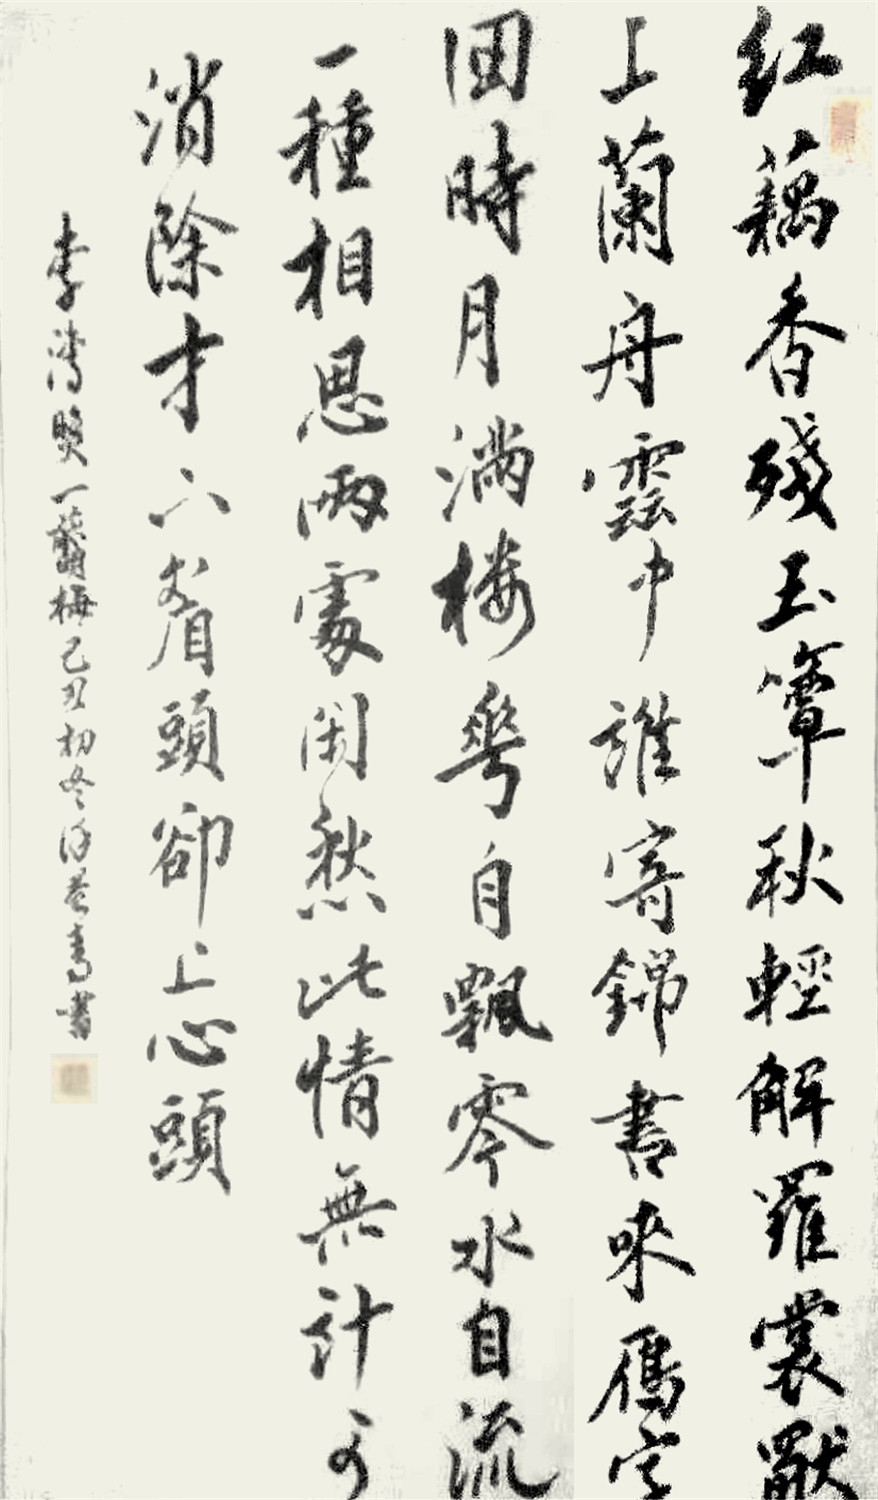 红藕香殘玉簟秋輕解羅裳
上蘭舟雲中誰寄錦書來雁字
回時月满楼華自飄零水自流
一種相思兩處閑愁此情無計可
消除才下眉頭卻上心頭
李清照一剪梅己丑初冬書